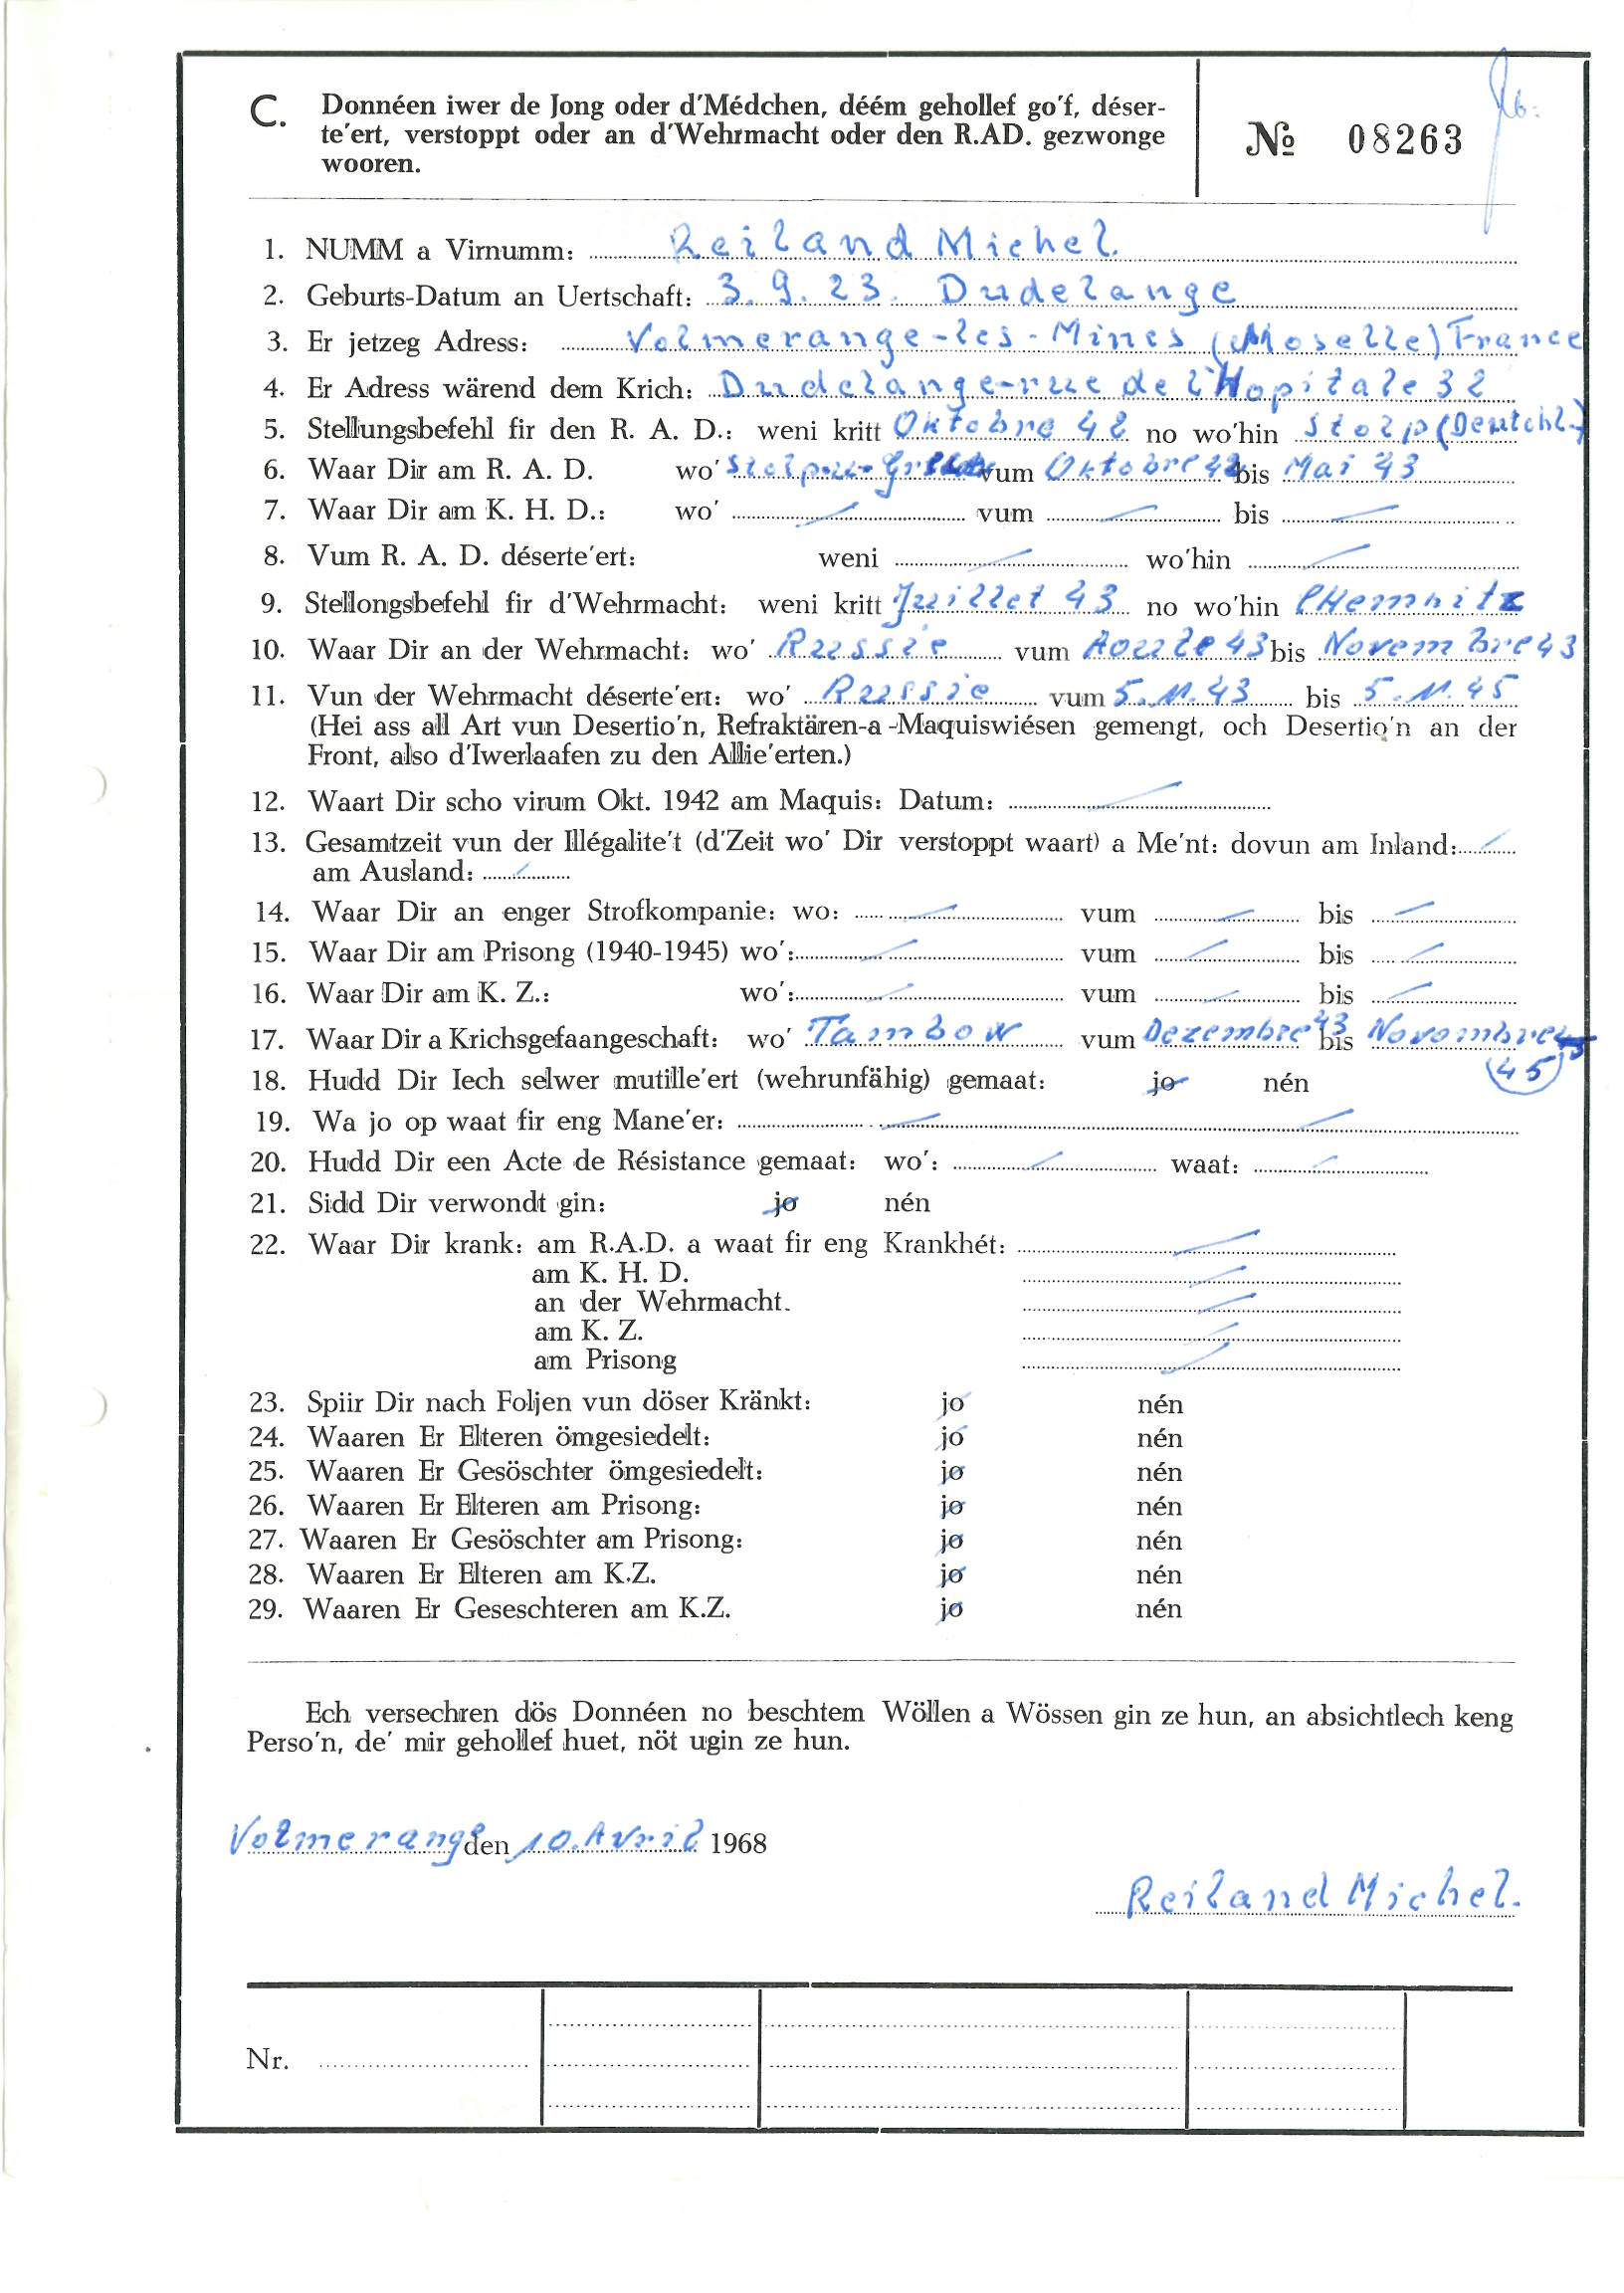 C. Donnéen iwer de Jong oder d'Médchen, déém gehollef go'f, déser-
te'ert, verstoppt oder an d'Wehrmacht oder den R.AD. gezwonge
wooren.
№ 08263
1. NUMM a Virnumm: Reiland Michel.
2. Geburts-Datum an Uertschaft: 3.9.23. Dudelange
3. Er jetzeg Adress: Volmerange-les-Mines (Moselle) France
4. Er Adress wärend dem Krich: Dudelange-rue de l'Hopitale 32
5. Stellungsbefehl fir den R. A. D.: weni kritt Oktobre 42 no wo'hin Stolp (Deutchl.)
6. Waar Dir am R. A. D. wo' Stolp vum Oktobre 42 bis Mai 43
7. Waar Dir am K. H. D.: wo' vum bis
8. Vum R. A. D. déserte'ert: weni wo'hin
9. Stellongsbefehl fir d'Wehrmacht: weni kritt Juillet 43 no wo'hin CHemnitz
10. Waar Dir an der Wehrmacht: wo' Russie vum Aoute 43 bis Novembre 43
11. Vun der Wehrmacht déserte'ert: wo' Russie vum 5.11.43 bis 5.11.45
(Hei ass all Art vun Desertio'n, Refraktären-a -Maquiswiésen gemengt, och Desertio'n an der
Front, also d'Iwerlaafen zu den Allie'erten.)
12. Waart Dir scho virum Okt. 1942 am Maquis: Datum:
13. Gesamtzeit vun der Illégalite't (d'Zeit wo' Dir verstoppt waart) a Me'nt: dovun am Inland:
am Ausland:
14. Waar Dir an enger Strofkompanie: wo: vum bis
15. Waar Dir am Prisong (1940-1945) wo': vum bis
16. Waar Dir am K. Z.: wo': vum bis
17. Waar Dir a Krichsgefaangeschaft: wo' Tambow vum Dezembre 43 bis Novombre 45
18. Hudd Dir Iech selwer mutille'ert (wehrunfähig) gemaat: jo nén
19. Wa jo op waat fir eng Mane'er:
20. Hudd Dir een Acte de Résistance gemaat: wo': waat:
21. Sidd Dir verwondt gin: jo nén
22. Waar Dir krank: am R.A.D. a waat fir eng Krankhét:
am K. H. D.
an der Wehrmacht.
am K. Z.
am Prisong
23. Spiir Dir nach Foljen vun döser Kränkt: jo nén
24. Waaren Er Elteren ömgesiedelt: jo nén
25. Waaren Er Gesöschter ömgesiedelt: jo nén
26. Waaren Er Elteren am Prisong: jo nén
27. Waaren Er Gesöschter am Prisong: jo nén
28. Waaren Er Elteren am K.Z. jo nén
29. Waaren Er Geseschteren am K.Z. jo nén
Ech versechren dös Donnéen no beschtem Wöllen a Wössen gin ze hun, an absichtlech keng
Perso'n, de' mir gehollef huet, nöt ugin ze hun.
Volmerange den 10. Avril 1968
Reiland Michel.
Nr.